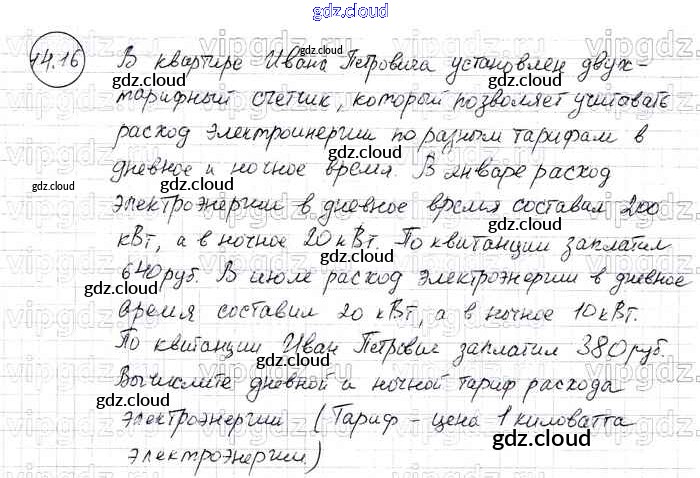 gdz.cloud
14.16 В квартире Ивана Петровича установлен двух-
тарифный счетчик, который позволяет учитавать
расход электроинергии по разным тарифам в
дневное и ночное время. В январе расход
электроэнергии в дневное время составил 200
кВт, а в ночное 20 кВт. По квитанции заплатил
640 руб. В июле расход электроэнергии в дневное
время составил 20 кВт, а в ночное 10 кВт.
По квитанции Иван Петрович заплатил 380 руб.
Вычислите дневной и ночной тариф расхода
электроэнергии (Тариф - цена 1 киловатта
электроэнергии.)